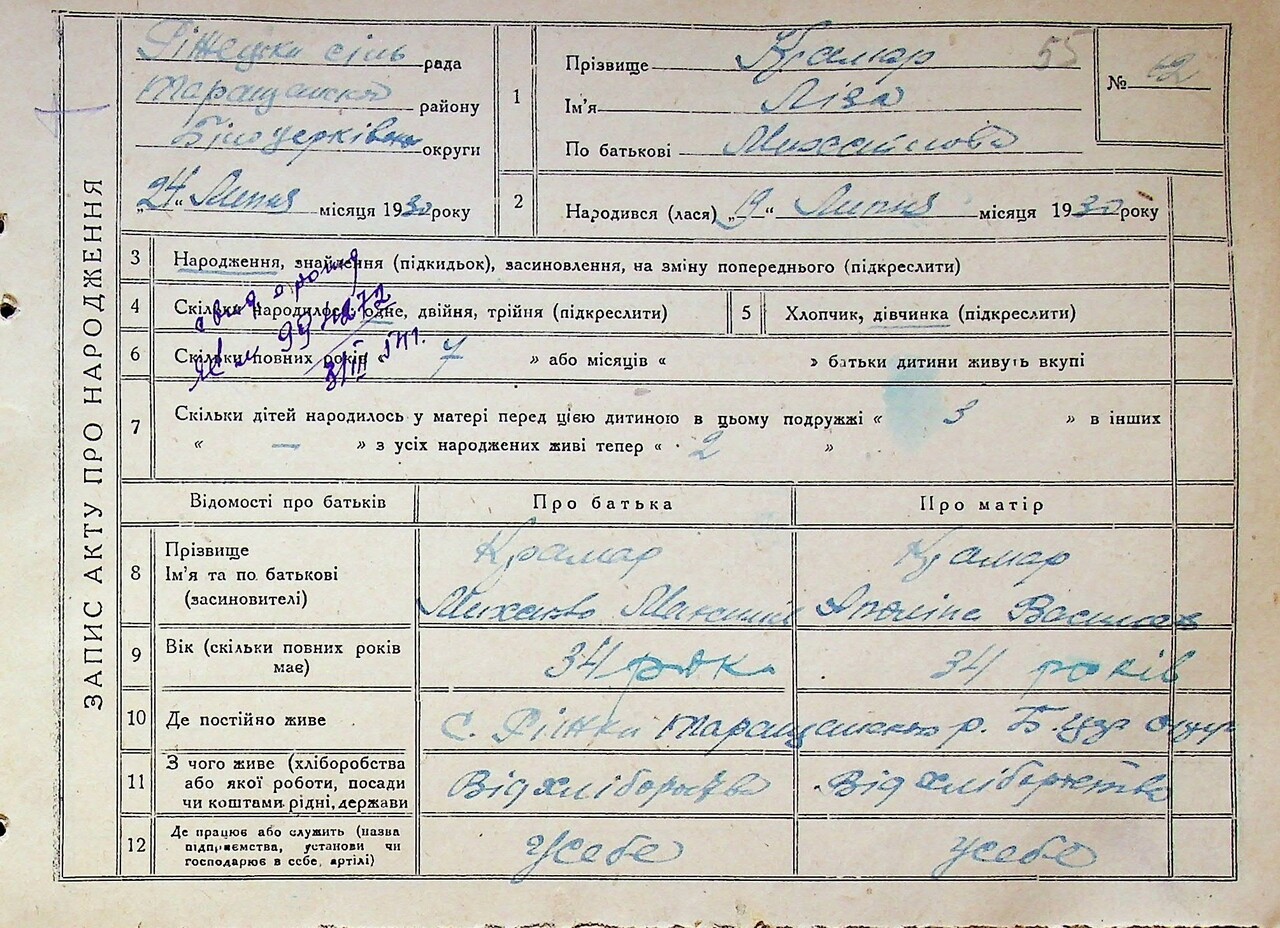 ЗАПИС АКТУ ПРО НАРОДЖЕННЯ
Ріжецька сіль рада
Таращанського району
Білоцерківської округи
„24“ Липня місяця 1930 року
1
Прізвище Крамар 55
Ім'я Ліза
По батькові Михайлова
№ 62
2
Народився (лася) „19“ Липня місяця 1930 року
3 Народження, знайдення (підкидьок), засиновлення, на зміну попереднього (підкреслити)
4 Скільки народилось: одне, двійня, трійня (підкреслити)
5 Хлопчик, дівчинка (підкреслити)
6 Скільки повних років « 7 » або місяців « » батьки дитини живуть вкупі
7 Скільки дітей народилось у матері перед цією дитиною в цьому подружжі « 3 » в інших
« — » з усіх народжених живі тепер « 2 »
Відомості про батьків Про батька Про матір
8 Прізвище
Ім'я та по батькові
(засиновителі)
Крамар
Крамар
9 Вік (скільки повних років
має)
34 рока
34 років
10 Де постійно живе
С. Ріжки Таращанського р. Б.
11 З чого живе (хліборобства
або якої роботи, посади
чи коштами рідні, держави
Від хліборобства
Від хліборобства
12 Де працює або служить (назва
підприємства, установи чи
господарює в себе, артілі)
У себе
У себе